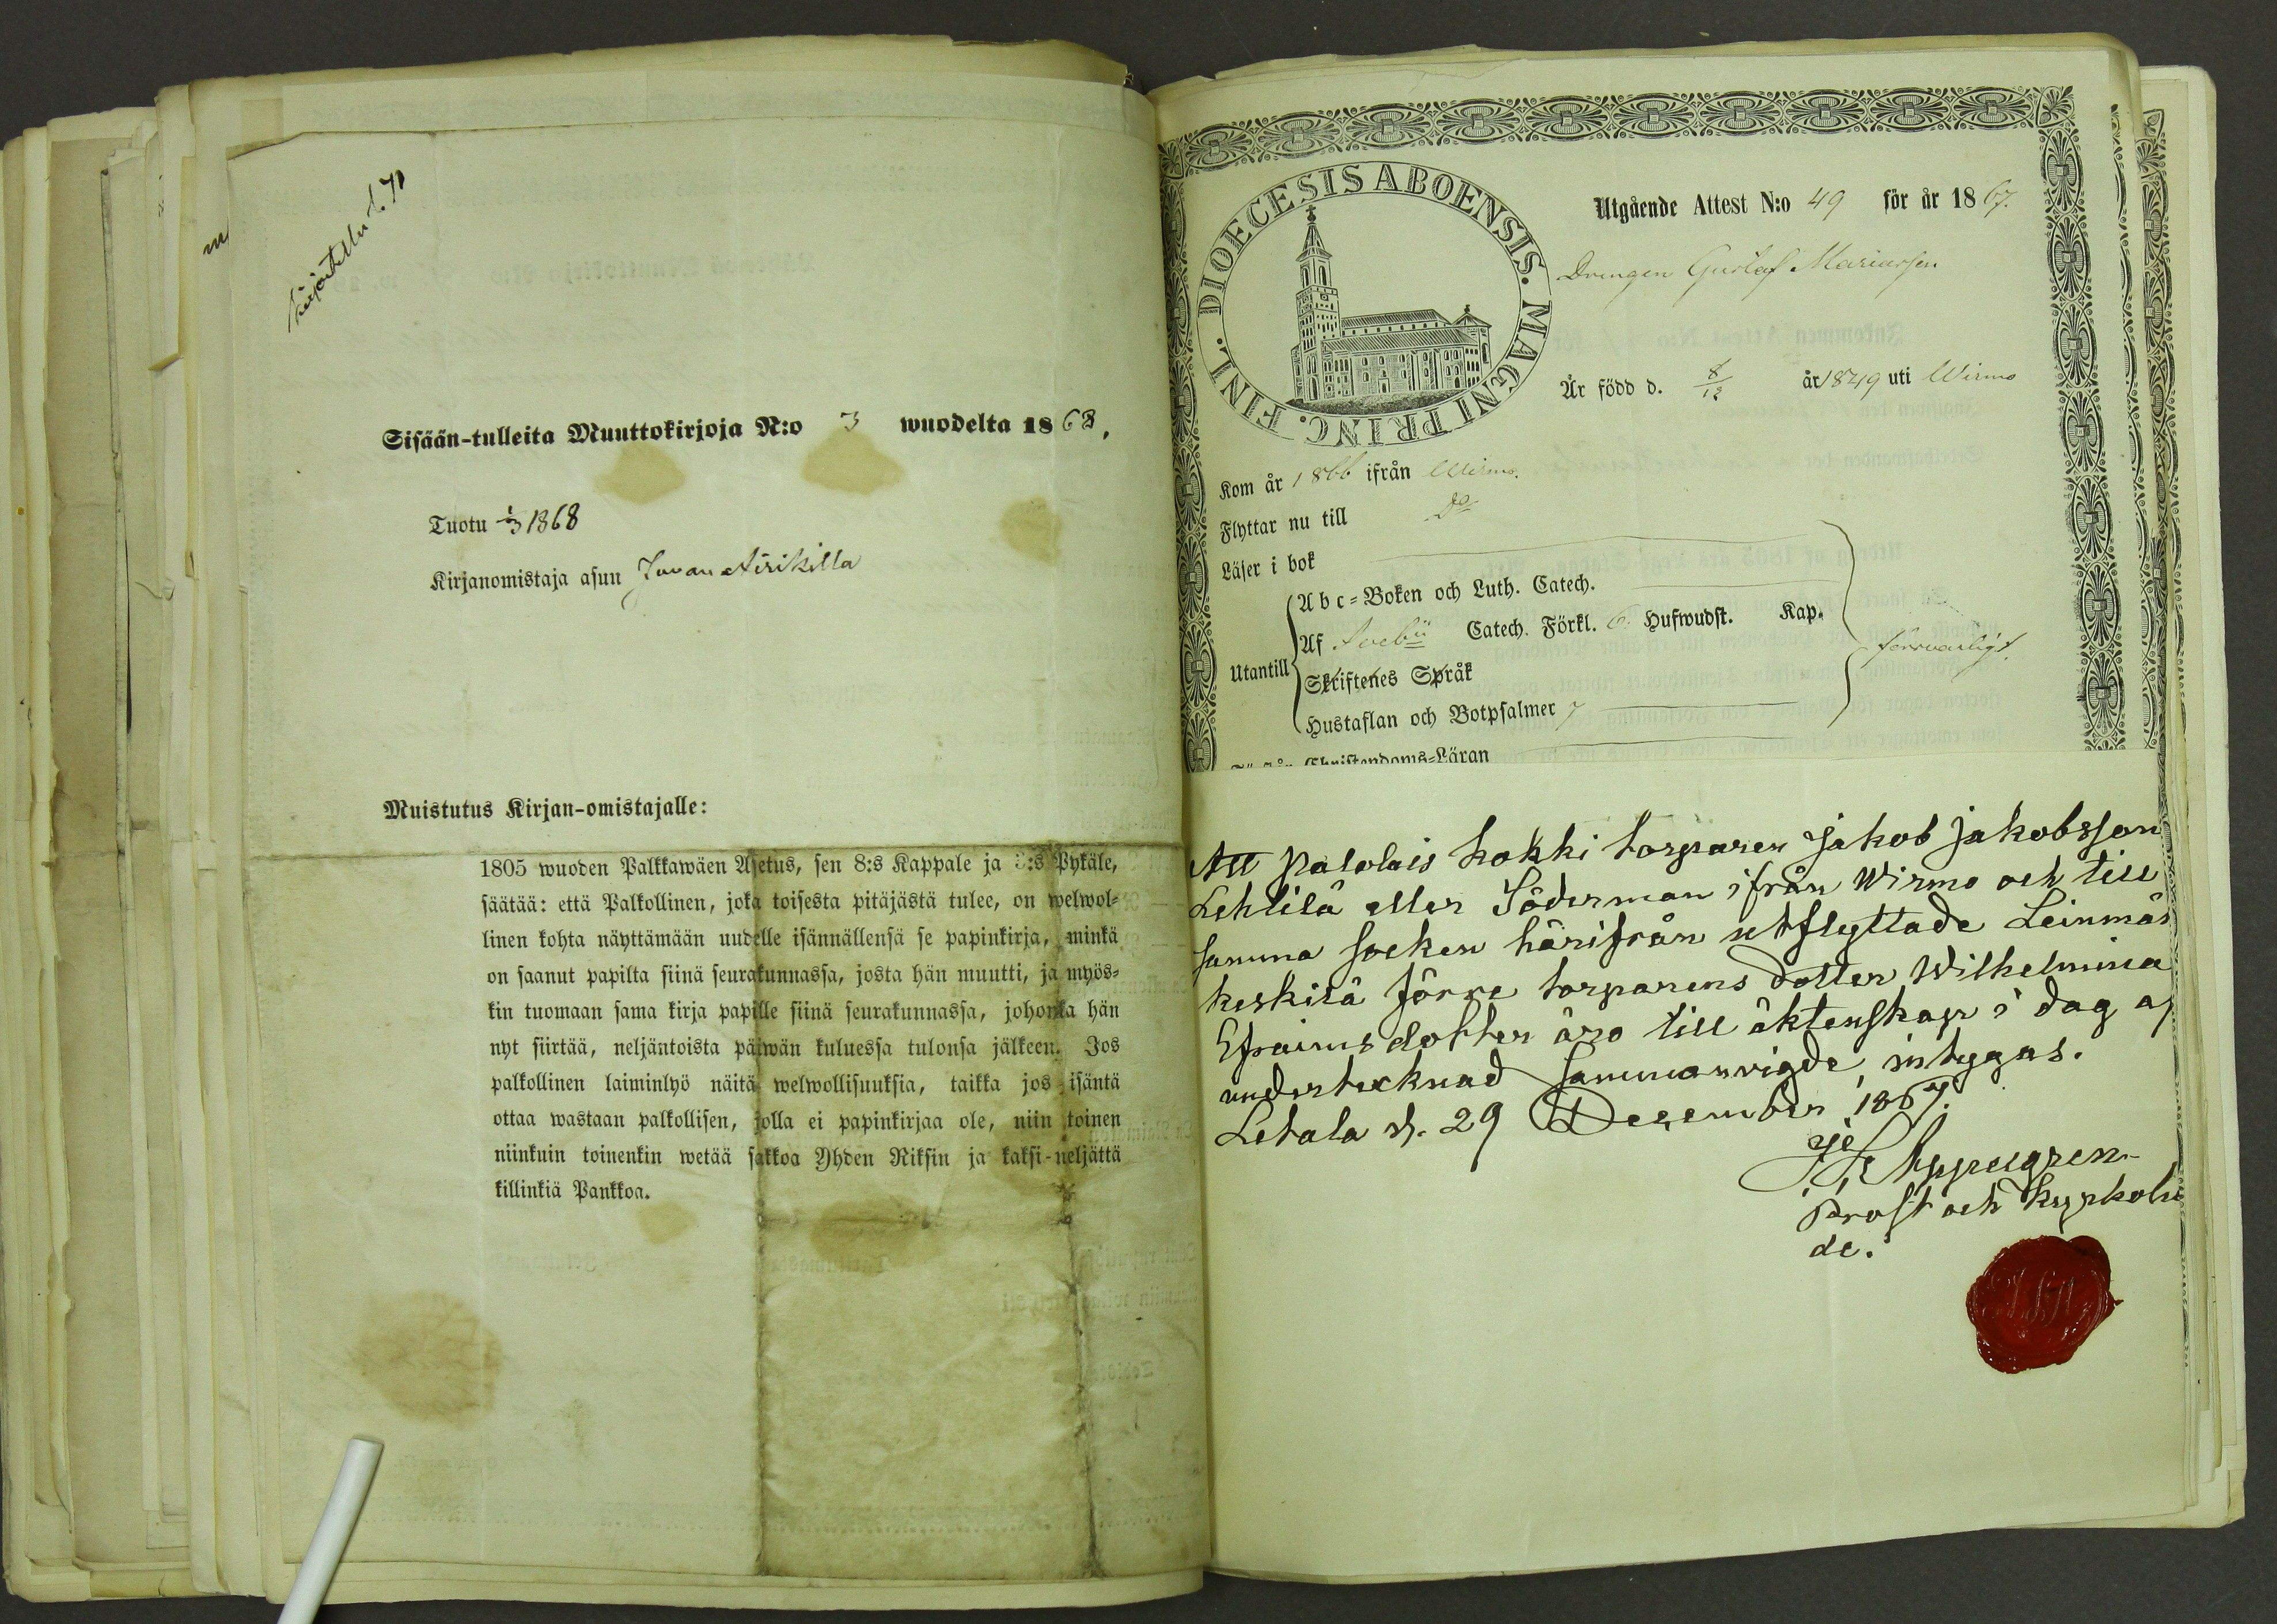 Kirjoitettu s. 71
Sisään-tulleita Muuttokirjoja N:o 3 wuodelta 1868.
Tuotu 1/3 1868
Kirjanomistaja asun Juvan Airikilla
Muistutus Kirjan-omistajalle:
1805 wuoden Palkkawäen Asetus, sen 8:s Kappale ja 3:s Pykäle,
säätää: että Palkollinen, joka toisesta pitäjästä tulee, on welwol-
linen kohta näyttämään uudelle isännällensä se papinkirja, minkä
on saanut papilta siinä seurakunnassa, josta hän muutti, ja myös-
kin tuomaan sama kirja papille siinä seurakunnassa, johonka hän
nyt siirtää, neljäntoista päiwän kuluessa tulonsa jälkeen. Jos
palkollinen laiminlyö näitä welwollisuuksia, taikka jos isäntä
ottaa wastaan palkollisen, jolla ei papinkirjaa ole, niin toinen
niinkuin toinenkin wetää sakkoa Yhden Riksin ja kaksi-neljättä
killinkiä Pankkoa.
DIOECESIS ABOENSIS. MAGNI PRINC. FINL.
Utgående Attest N:o 49 för år 1867.
Drengen Gustaf Mariasson
Är född d. 8/12 år 1849 uti Wirmo
Kom år 1866 ifrån Wirmo.
Flyttar nu till Do
Läser i bok
Abc-Boken och Luth. Catech.
Utantill
Af Svebii Catech. Förkl. 6 Hufwudst. Kap.
försvarligt.
Skriftenes Språk
Hustaflan och Botpsalmer 7
Christendoms-Läran
Att Palolais kokki torparen Jakob Jakobsson
Lehtilä eller Söderman ifrån Wirmo och till
samma socken härifrån utflyttade Leinmäs
keskilä förre torparens dotter Wilhelmina
Efraimsdotter äro till äktenskap i dag af
undertecknad sammanvigde, intygas.
Letala d. 29 December 1867.
Prost och kyrkoher
de.